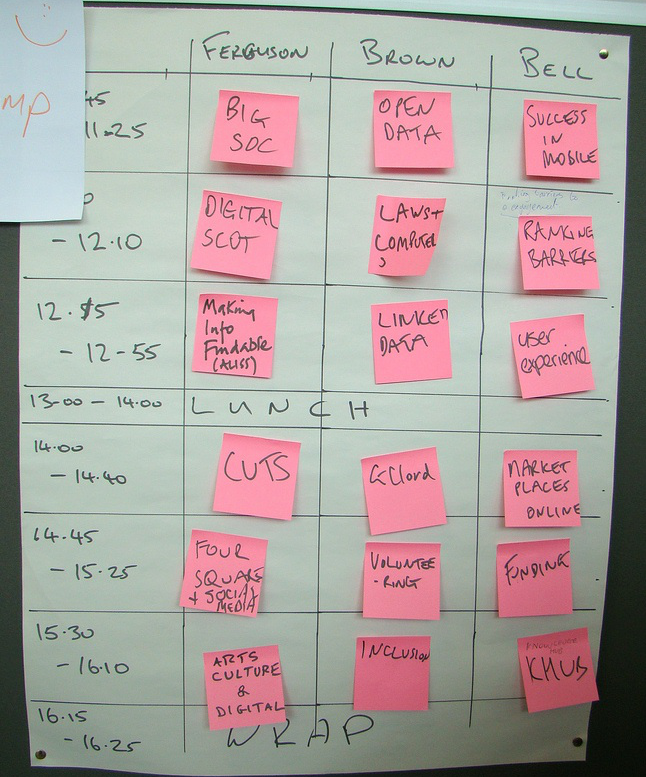 MP
FERGUSON BROWN BELL
45
11.25
BIG
SOC
OPEN
DATA
SUCCESS
IN
MOBILE
- 12.10
DIGITAL
SCOT
LAWS +
COMPUTER
RANKING
BARRIERS
12.15
- 12-55
Making
Info
Findable
(ALISS)
LINKED
DATA
User
experience
13-00 - 14.00 LUNCH
14.00
- 14.40
CUTS
GCloud
MARKET
PLACES
ONLINE
14.45
- 15.25
FOUR
SQUARE
+ SOCIAL
MEDIA
VOLUNTEE
-RING
FUNDING
15.30
- 16.10
ARTS
CULTURE
&
DIGITAL
INCLUSION
KNOWLEDGE
HUB
KHUB
16.15
- 16.25
WRAP